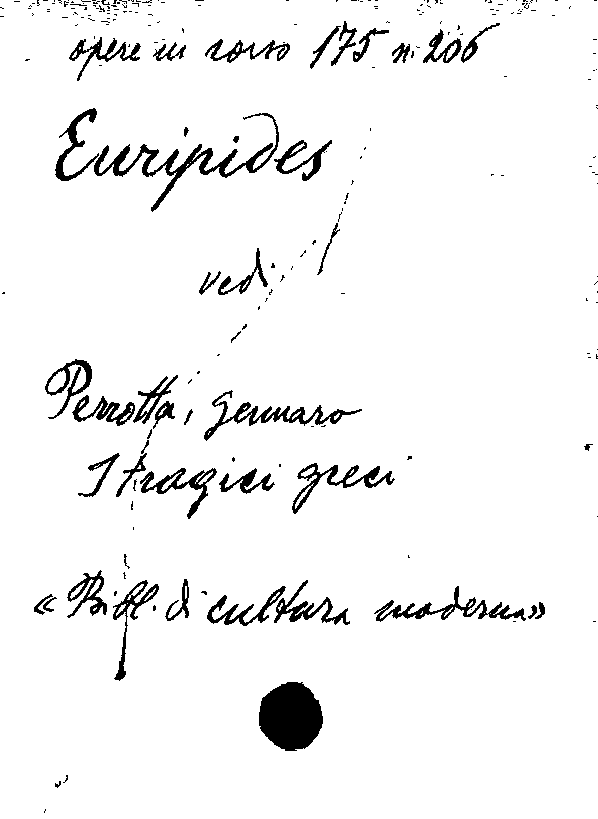 opere in corso 175 n. 206
Euripides
vedi
Perrotta, Gennaro
I tragici greci
« Bibl. di cultura moderna »